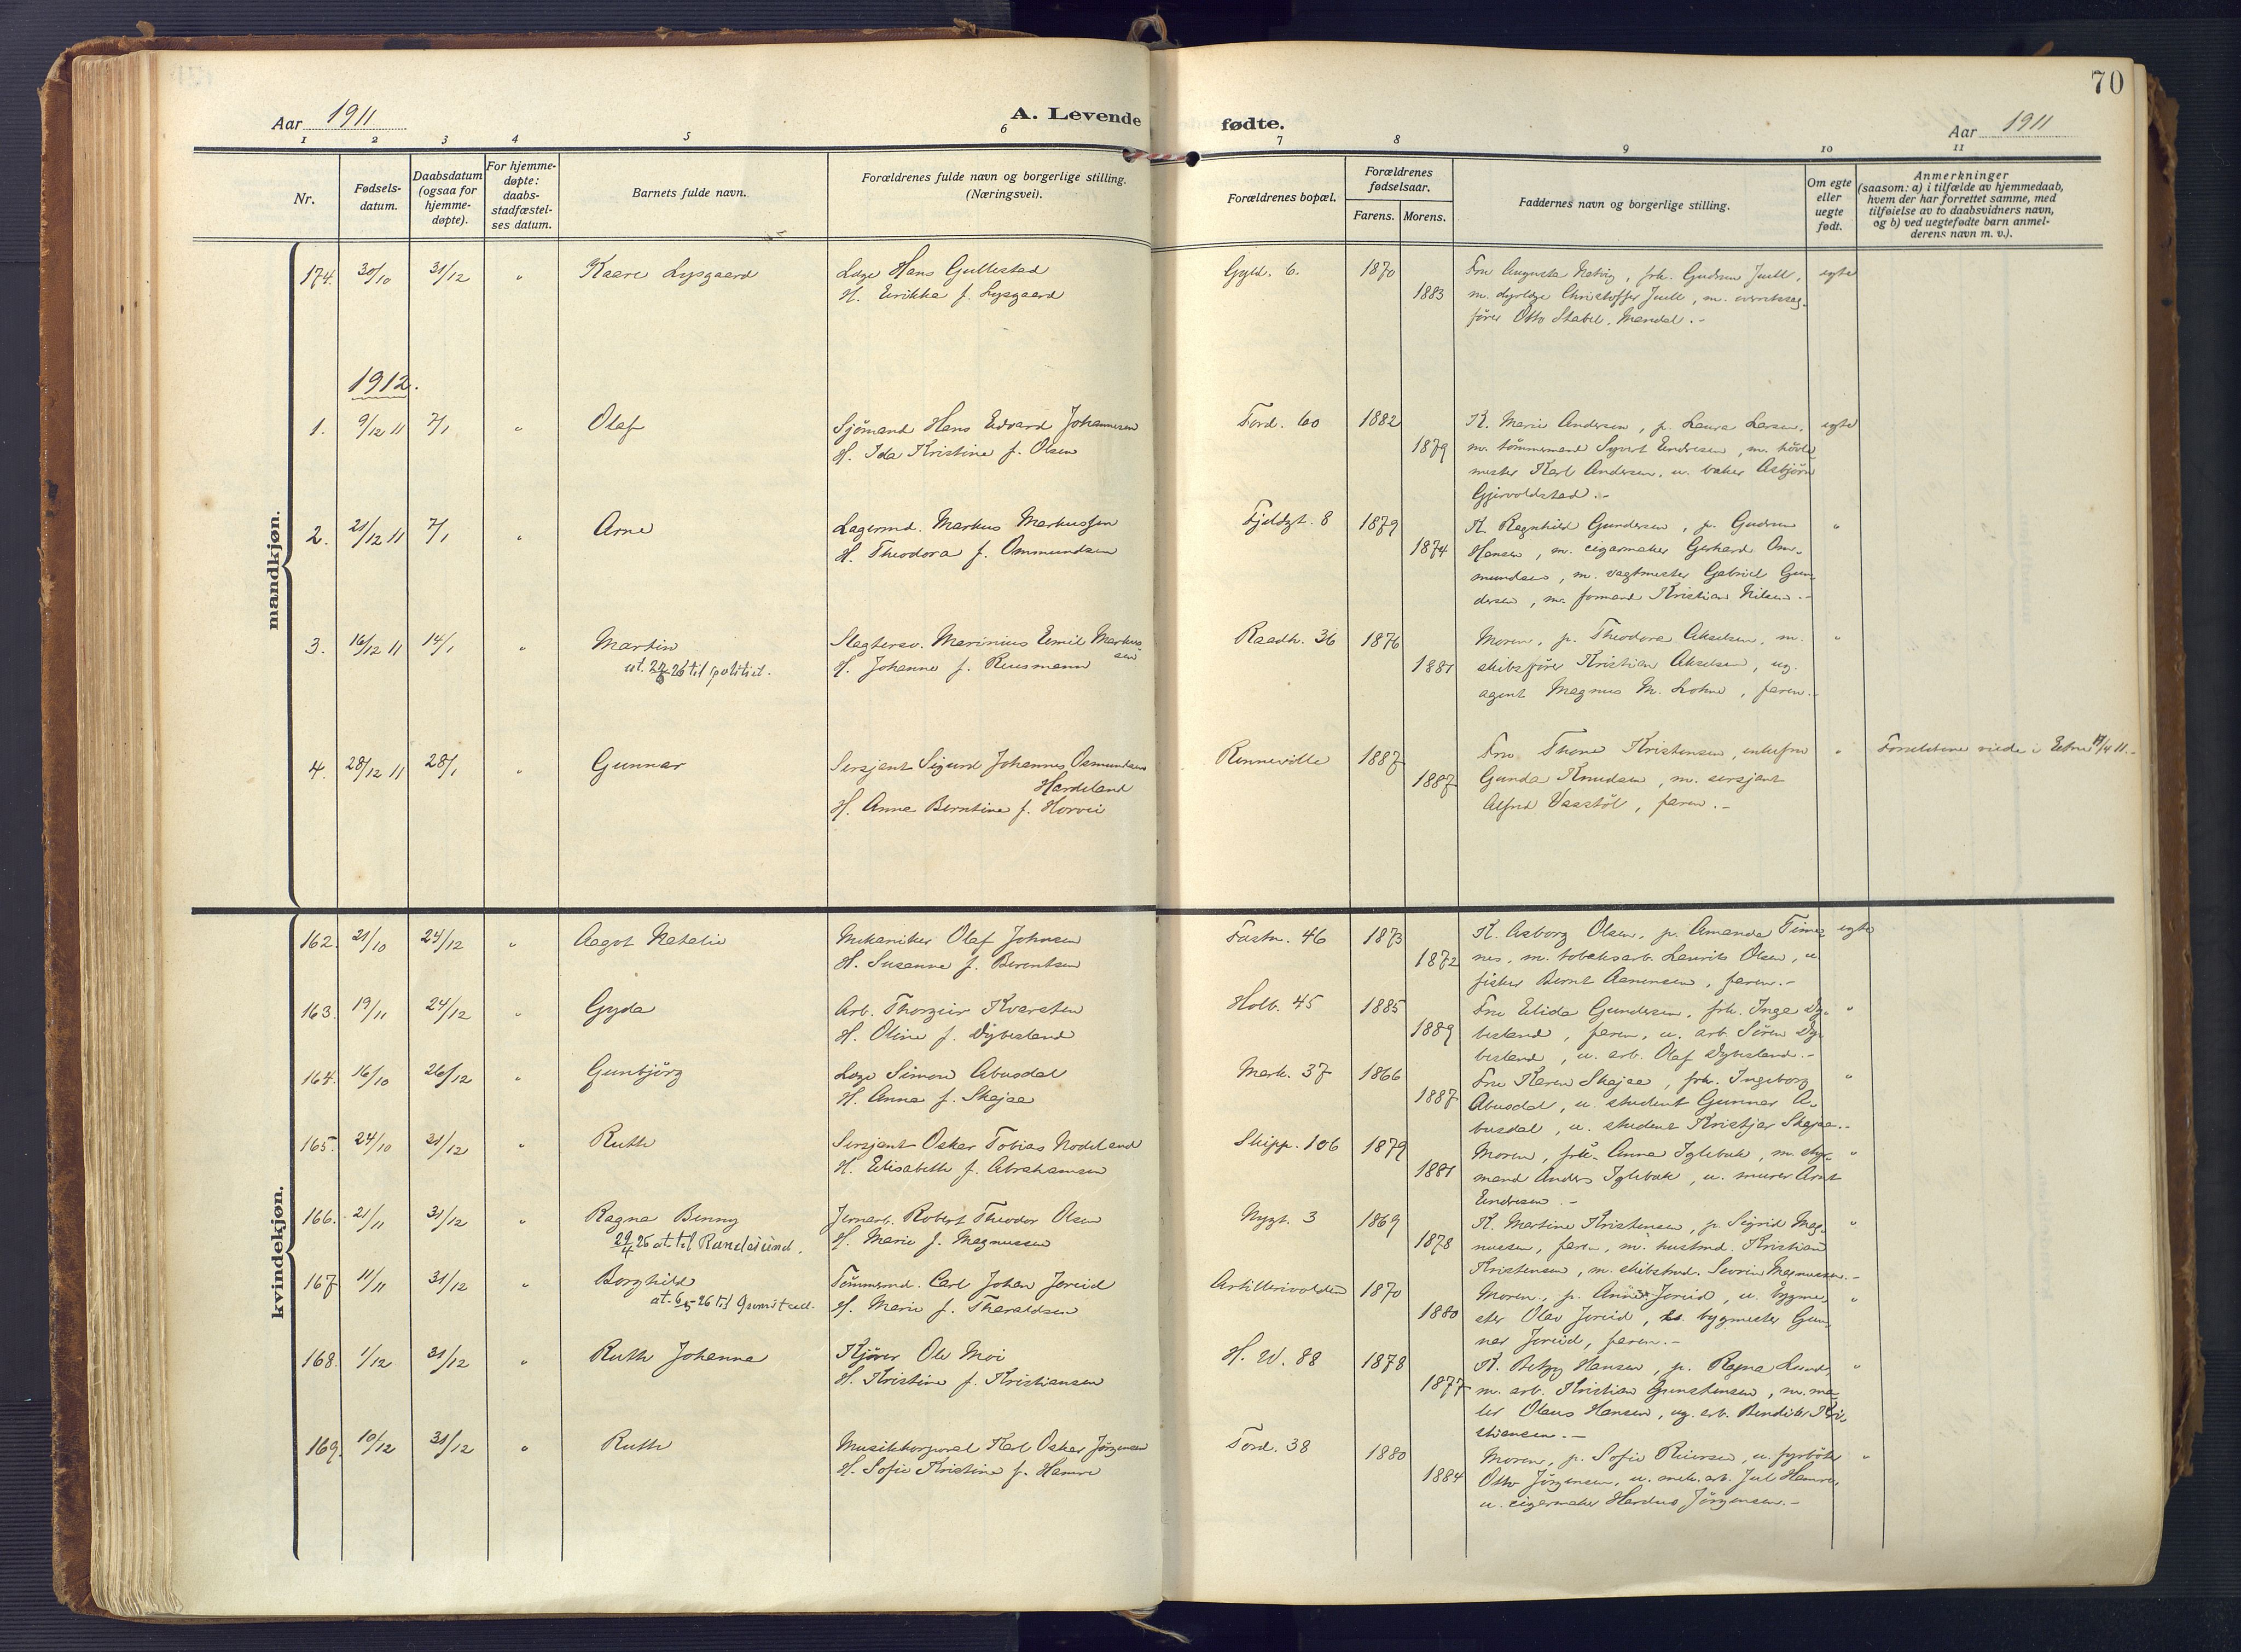 70
Aar 1911
A. Levende fødte.
Aar 1911
1 2 3 4 5 6 7 8 9 10 11
Nr.
Fødsels-
datum.
Daabsdatum
(ogsaa for
hjemme-
døpte).
For hjemme-
døpte:
daabs-
stadfæstel-
ses datum.
Barnets fulde navn.
Forældrenes fulde navn og borgerlige stilling.
(Næringsvei).
Forældrenes bopæl.
Forældrenes
fødselsaar.
Farens. Morens.
Faddernes navn og borgerlige stilling.
Om egte
eller
uegte
født.
Anmerkninger
(saasom: a) i tilfælde av hjemmedaab,
hvem der har forrettet samme, med
tilføielse av to daabsvidners navn,
og b) ved uegtefødte barn anmel-
derens navn m. v.).
mandkjøn.
174. 30/10 31/12 " Kaare Lysgaard
Læge Hans Gullestad
H. Erikka f. Lysgaard
Gyld. 6. 1870 1883
Fru Augusta Natvig, frk. Gudrun Juell,
m. dyrlæge Christoffer Juell, m. overretssag-
fører Otto Stabel, Mandal.-
egte
1912.
1. 9/12 11 7/1 " Olaf
Sjømand Hans Edvard Johannesen
H. Ida Kristine f. Olsen
Tord. 60 1882 1879
K. Marie Andersen, p. Laura Larsen,
m. tømmermand Syvert Endresen, m. høvle
mester Karl Andersen, u. baker Asbjørn
Gjervoldstad.-
egte
2. 21/12 11 7/1 " Arne
Lagermd. Markus Markussen
H. Theodora f. Ommundsen
Fjeldgt. 8 1879 1874
K. Ragnhild Gundersen, p. Gudrun
Hansen, m. cigarmaker Gerhard Om-
mundsen, m. vagtmester Gabriel Gun-
dersen, m. formand Kristian Nilsen.-
"
3. 16/12 11 14/1 " Martin
ut. 26 til politiet.
Slagtersv. Marinius Emil Markus
sen
H. Johanne f. Reusmann
Raadh. 36 1876 1881
Moren, p. Theodora Akselsen, m.
skibsfører Kristian Akselsen, ug.
agent Magnus M. Lohne, faren.-
"
4. 28/12 11 28/1 " Gunnar
Sersjant Sigurd Johannes Osmundsen
Hardeland
H. Anna Berntine f. Horvei
Renneville 1887 1887
Fru Thone Kristensen, enkefru
Gunda Knudsen, m. sersjant
Alfred Vaastøl, faren.-
"
Forældrene viede i Etne /4 11.-
kvindekjøn.
162. 21/10 24/12 " Aagot Natalie
Mekaniker Olaf Johnsen
H. Susanne f. Berentsen
Fæstn. 46 1873 1872
K. Asborg Olsen, p. Amanda Time
nes, m. tobaksarb. Laurits Olsen, u
fisker Bernt Aanensen, faren.-
egte
163. 19/11 24/12 " Gyda
Arb. Thorgeir Kvarsten
H. Oline f. Dybesland
Holb. 45 1885 1889
Fru Elida Gundersen, frk. Inga Dy-
besland, faren, u. arb. Søren Dy-
besland, u. arb. Olaf Dybesland.-
"
164. 16/10 26/12 " Gunbjörg
Læge Simon Abusdal
H. Anna f. Skajaa
Mark. 37 1866 1887
Fru Karen Skajaa, frk. Ingeborg
Abusdal, u. student Gunnar A-
busdal, u. student Kristjar Skajaa.-
"
165. 24/10 31/12 " Ruth
Sersjant Oskar Tobias Nodeland
H. Elisabeth f. Abrahamsen
Skipp. 106 1879 1881
Moren, frk. Anna Iglebæk, m. styr-
mand Anders Iglebæk, u. murer Arnt
Endresen.-
"
166. 21/11 31/12 " Ragna Benny
29/4 26 at. til Randesund.
Jernarb. Robert Theodor Olsen
H. Marie f. Magnussen
Nygt. 3 1869 1878
K. Martine Kristensen, p. Sigrid Mag-
nussen, faren, m. hustmd. Kristian
Kristensen, m. skibstmd. Severin Magnussen.-
"
167 11/11 31/12 " Borghild
at. 6/5-26 til
Tømmermd. Carl Johan Joreid
H. Marie f. Tharaldsen
Artillerivolden 1870 1880
Moren, p. Anna Joreid, u. bygme-
ster Olav Joreid, bygmester Gun-
nar Joreid, faren.-
"
168. 1/12 31/12 " Ruth Johanna
Kjører Ole Moi
H. Kristine f. Kristiansen
H. W. 88 1878 1877
K. Betzy Hansen, p. Ragna Lund,
m. arb. Kristian Gunstensen, m. ma-
ler Olaus Hansen, ug. arb. Bendikt Kri-
stiansen.-
"
169. 10/12 31/12 " Ruth
Musikkorporal Karl Oskar Jørgensen
H. Sofie Kristine f. Hamre
Tord. 38 1880 1884
Moren, p. Sofie Reiersen, u. fyrbøter
Otto Jørgensen, u. mek. arb. Jul Hamre,
u. cigarmaker Hardus Jørgensen.-
"